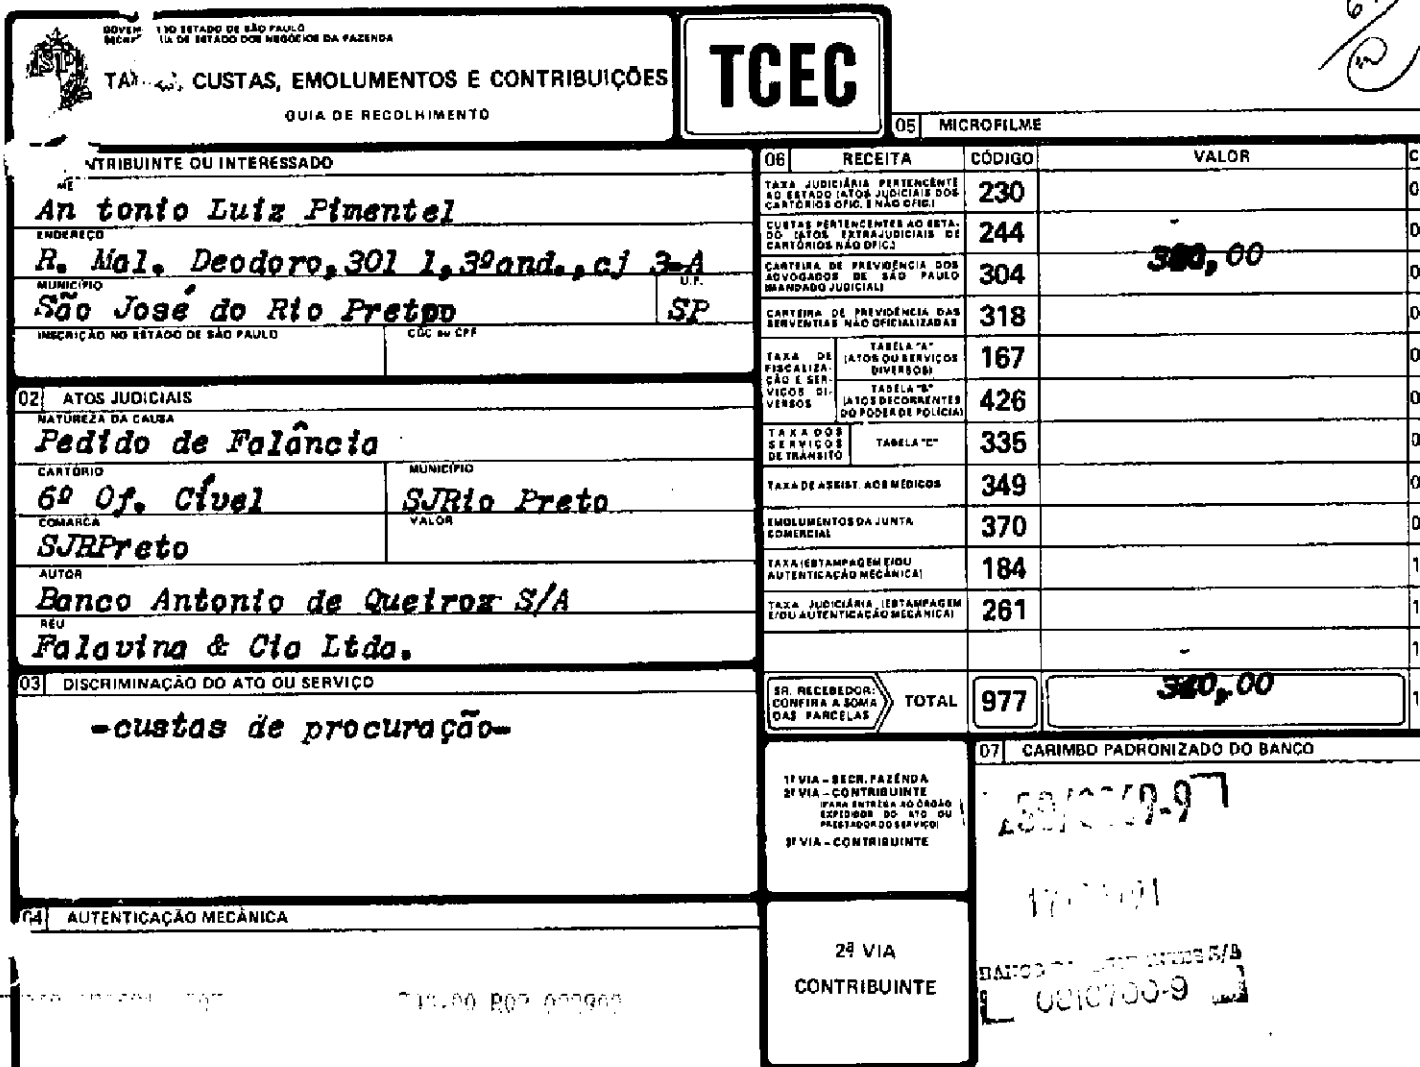 ESTADO DE SÃO PAULO
DE ESTADO DOS NEGÓCIOS DA FAZENDA
CUSTAS, EMOLUMENTOS E CONTRIBUIÇÕES
GUIA DE RECOLHIMENTO
TCEC
05 MICROFILME
NTRIBUINTE OU INTERESSADO
An tonio Luiz Pimentel
ENDEREÇO
R. Mal. Deodoro, 301 1, 3ºand., cj 3-A
MUNICÍPIO
U.F.
São José do Rio Pretpo
SP
INSCRIÇÃO NO ESTADO DE SÃO PAULO
CGC ou CPF
02 ATOS JUDICIAIS
NATUREZA DA CAUSA
Pedido de Falância
CARTÓRIO
MUNICÍPIO
6º Of. Cível
SJRio Preto
COMARCA
VALOR
SJRPreto
AUTOR
Banco Antonio de Queiroz S/A
RÉU
Falavina & Cia Ltda.
03 DISCRIMINAÇÃO DO ATO OU SERVIÇO
-custas de procuração-
04 AUTENTICAÇÃO MECÂNICA
06 RECEITA CÓDIGO VALOR
TAXA JUDICIÁRIA PERTENCENTE
AO ESTADO (ATOS JUDICIAIS DOS
CARTÓRIOS OFIC. E NÃO OFIC.)
230
CUSTAS PERTENCENTES AO ESTA-
DO (ATOS EXTRAJUDICIAIS DE
CARTÓRIOS NÃO OFIC.)
244
CARTEIRA DE PREVIDÊNCIA DOS
ADVOGADOS DE SÃO PAULO
(MANDADO JUDICIAL)
304
CARTEIRA DE PREVIDÊNCIA DAS
SERVENTIAS NÃO OFICIALIZADAS
318
TAXA DE
FISCALIZA-
ÇÃO E SER-
VIÇOS DI-
VERSOS
TABELA "A"
(ATOS OU SERVIÇOS
DIVERSOS)
167
TABELA "B"
(ATOS DECORRENTES
DO PODER DE POLÍCIA)
426
TAXA DOS
SERVIÇOS
DE TRÂNSITO
TABELA "C"
335
TAXA DE ASSIST. AOS MÉDICOS
349
EMOLUMENTOS DA JUNTA
COMERCIAL
370
TAXA (ESTAMPAGEM E/OU
AUTENTICAÇÃO MECÂNICA)
184
TAXA JUDICIÁRIA (ESTAMPAGEM
E/OU AUTENTICAÇÃO MECÂNICA)
261
SR. RECEBEDOR:
CONFIRA A SOMA
DAS PARCELAS
TOTAL
977
1ª VIA - SECR. FAZENDA
2ª VIA - CONTRIBUINTE
(PARA ENTREGA AO ÓRGÃO
EXPEDIDOR DO ATO OU
PRESTADOR DO SERVIÇO)
3ª VIA - CONTRIBUINTE
2ª VIA
CONTRIBUINTE
07 CARIMBO PADRONIZADO DO BANCO
S/A